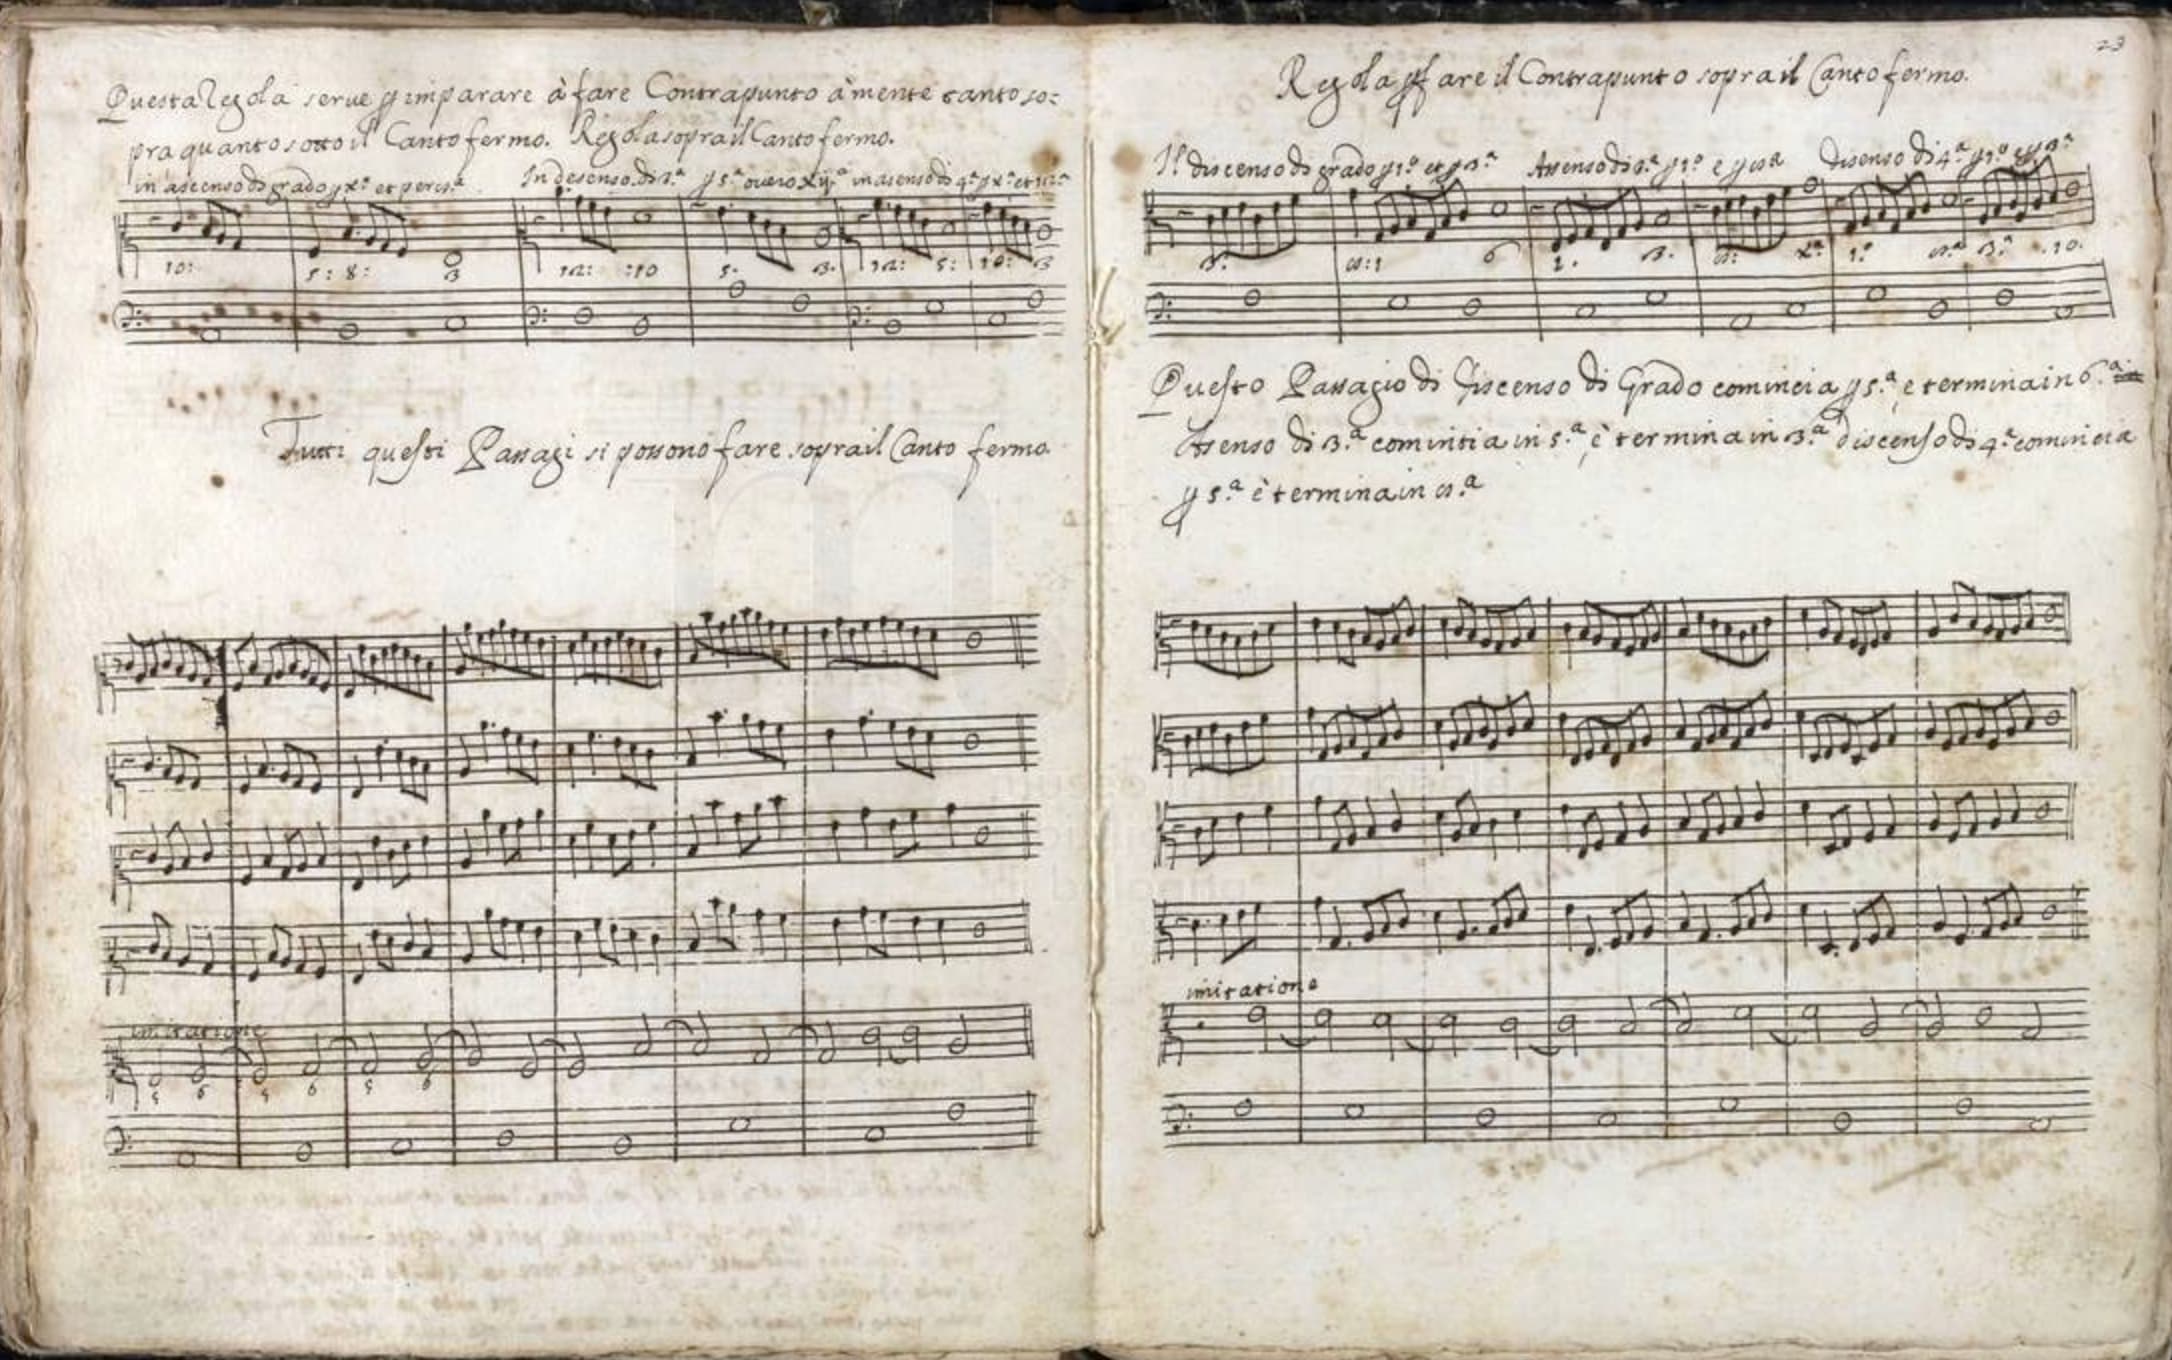 Questa Regola serve p imparare à fare Contrapunto à mente tanto so:
pra quanto sotto il Canto fermo. Regola sopra il Canto fermo.
in ascenso di grado p x.ª et per
In desenso di 3.ª p 5.ª overo xij.ª in asenso di 4.ª p x.ª et 12.ª
10: 5: 8: 3 12: :10 5. 3. 12: 5: 10: 3
Tutti questi Passagi si possono fare sopra il Canto fermo
imitatione
5 6 5 6 5 6
23
Regola p fare il Contrapunto sopra il Canto fermo.
discenso di grado et p 3.ª Assenso di 3.ª e Disenso di 4.ª
6 3. 3.ª .10.
Questo Passagio di Discenso di Grado comincia p 5.ª e termina in 6.ª
Assenso di 3.ª comintia in 5.ª è termina in 3.ª discenso di 4.ª comincia
p 5.ª è termina in
imitatione